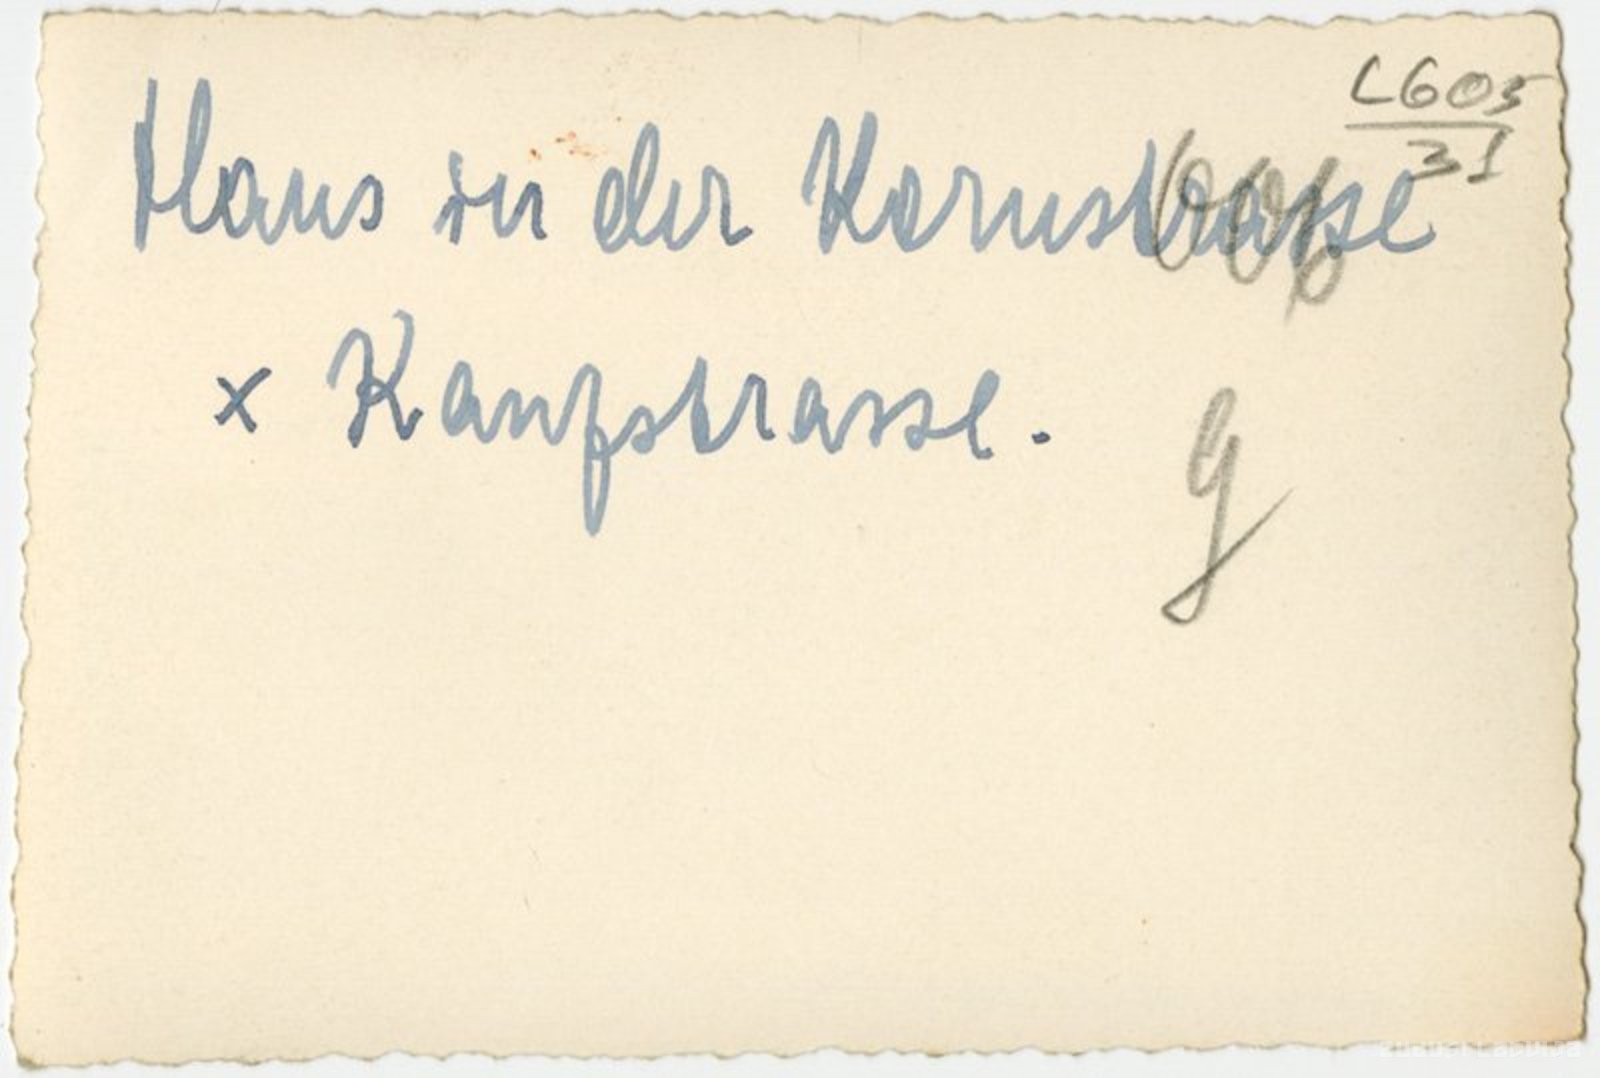 L605
31
Haus in der Kornstrasse
x Kanfstrasse.
g